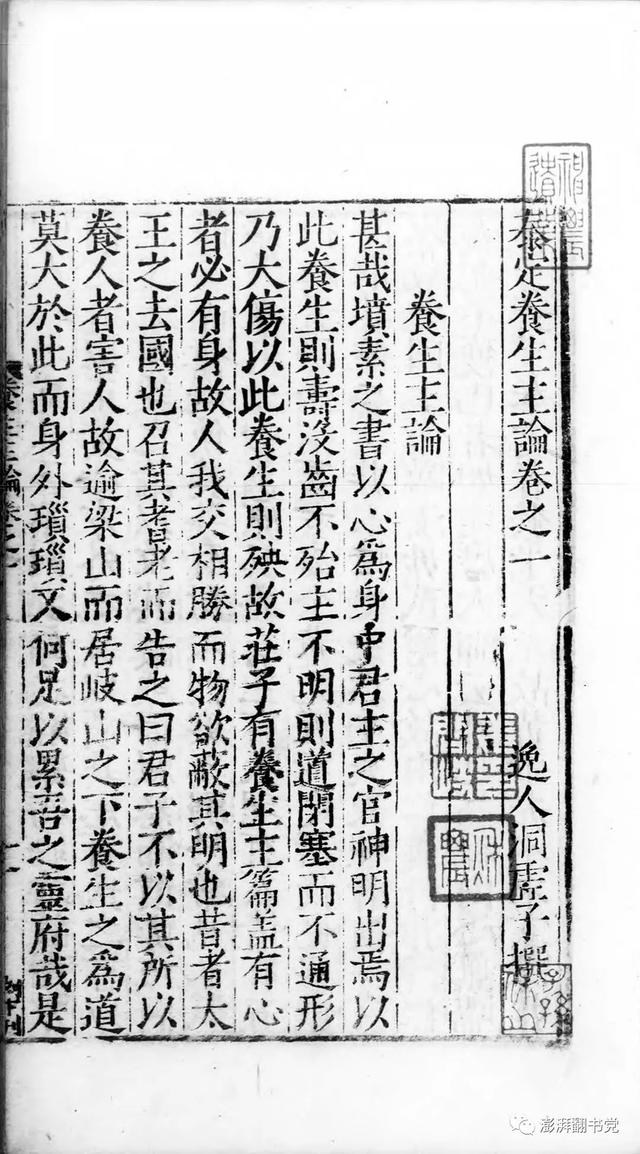 泰定養生主論卷之一
逸人洞虛子撰
養生主論
甚哉墳素之書以心為身中君主之官神明出焉以
此養生則壽沒齒不殆主不明則道閉塞而不通形
乃大傷以此養生則殃故莊子有養生主篇盖有心
者必有身故人我交相勝而物欲蔽其明也昔者太
王之去國也召其耆老而告之曰君子不以其所以
養人者害人故逾梁山而居岐山之下養生之為道
莫大於此而身外瑣瑣又何足以累吾之靈府哉是
養生主論卷之一
澎湃翻书党